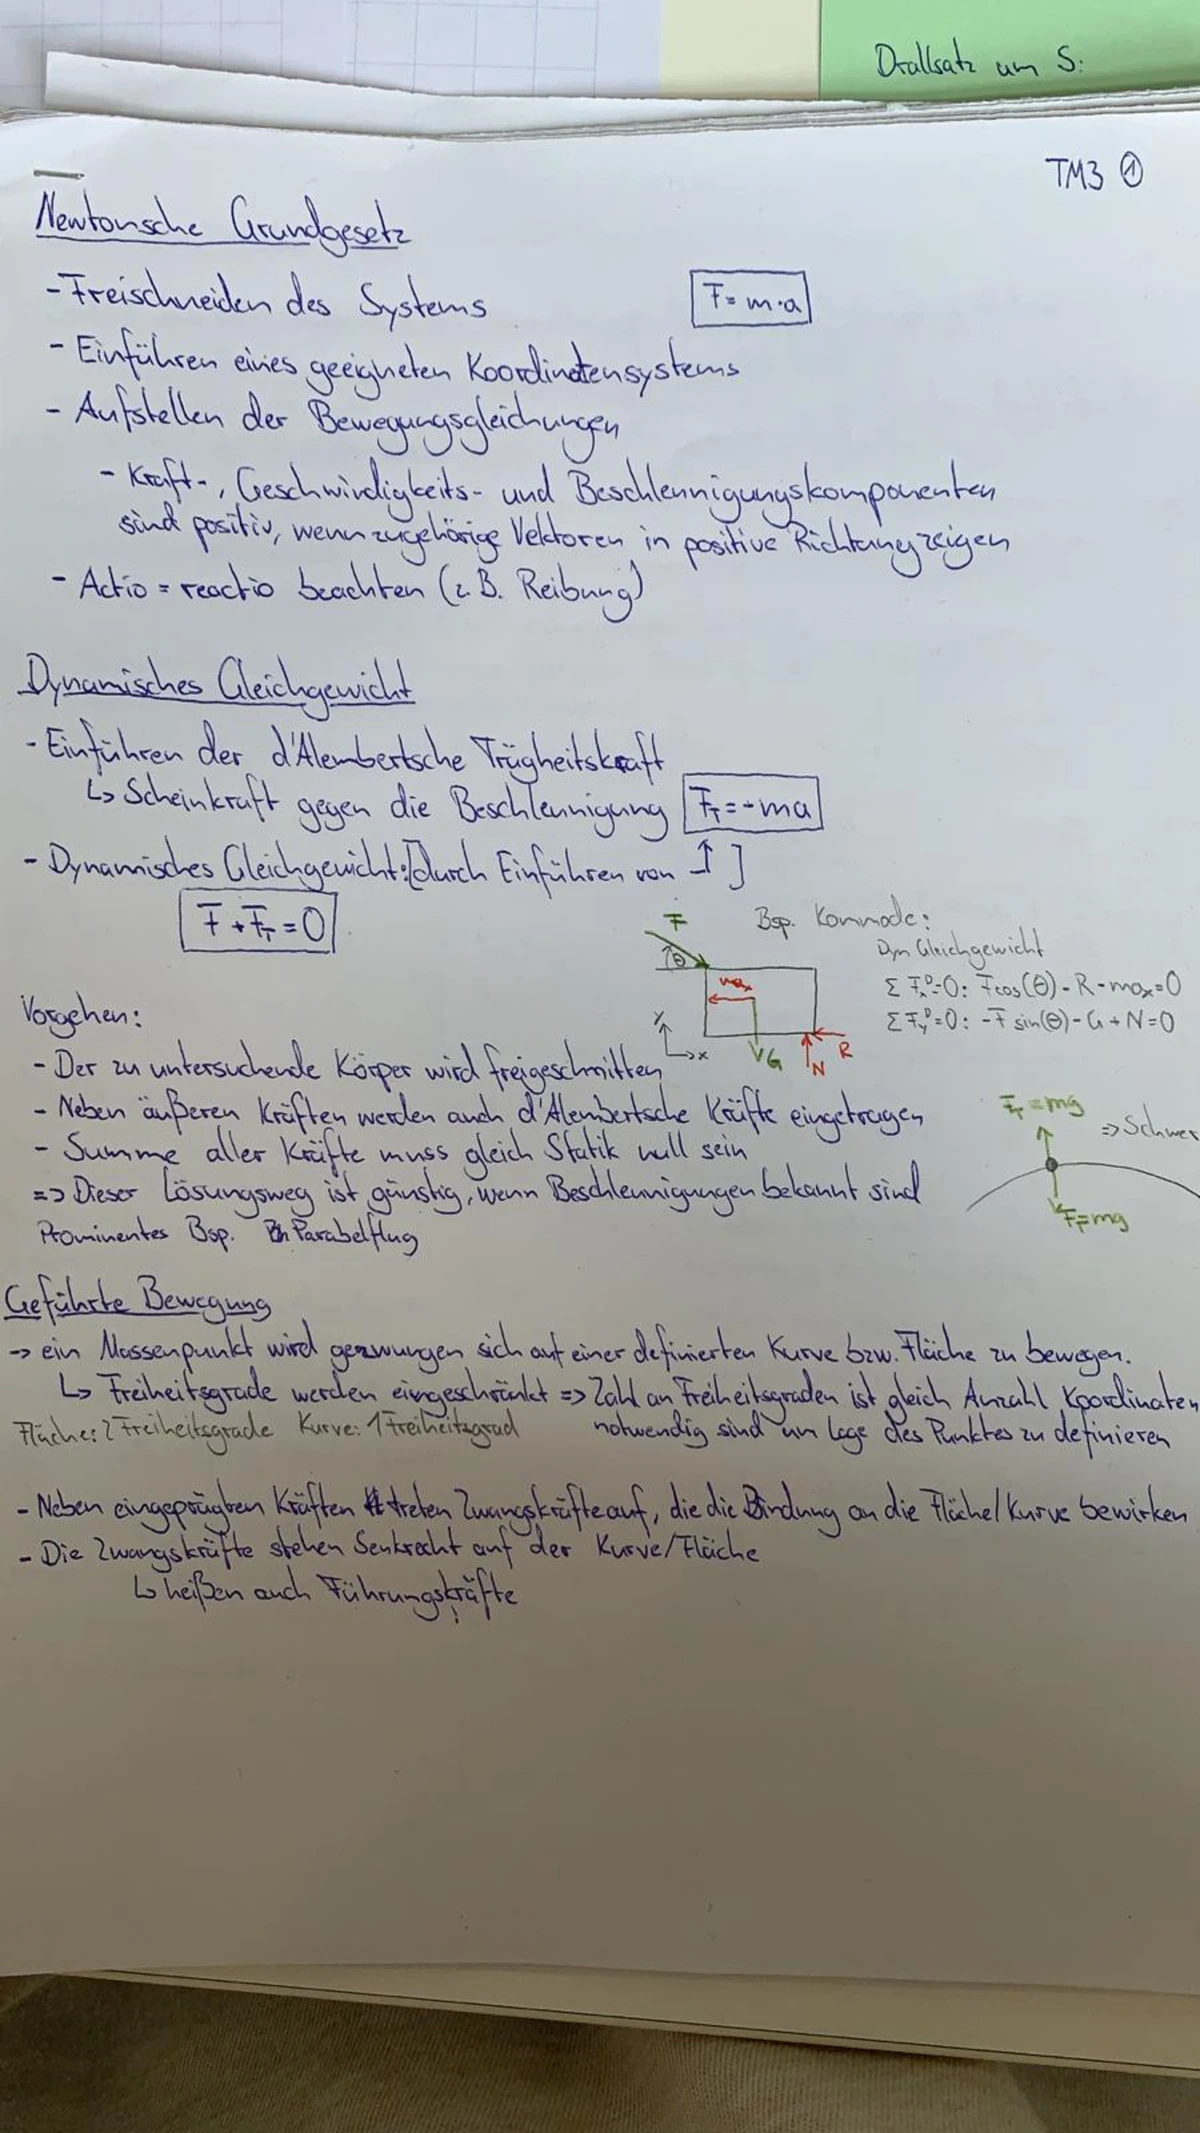 Drallsatz um S:
TM3 ①
Newtonsche Grundgesetz
- Freischneiden des Systems
F = m·a
- Einführen eines geeigneten Koordinatensystems
- Aufstellen der Bewegungsgleichungen
- Kraft-, Geschwindigkeits- und Beschleunigungskomponenten
sind positiv, wenn zugehörige Vektoren in positive Richtung zeigen
- Actio = reactio beachten (z.B. Reibung)
Dynamisches Gleichgewicht
- Einführen der d'Alembertsche Trägheitskraft
↳ Scheinkraft gegen die Beschleunigung F_T = -ma
- Dynamisches Gleichgewicht: [durch Einführen von ↑ ]
F + F_T = 0
F
Bsp. Kommode:
θ
Dyn Gleichgewicht
max
Σ F_x^D=0: Fcos(θ) - R - ma_x=0
Σ F_y^D=0: -F sin(θ) - G + N=0
y
x
G
N
R
Vorgehen:
- Der zu untersuchende Körper wird freigeschnitten
- Neben äußeren Kräften werden auch d'Alembertsche Kräfte eingetragen
- Summe aller Kräfte muss gleich Statik null sein
=> Dieser Lösungsweg ist günstig, wenn Beschleunigungen bekannt sind
Prominentes Bsp. Parabelflug
F_T = mg
=> Schwer
F=mg
Geführte Bewegung
-> ein Massenpunkt wird gezwungen sich auf einer definierten Kurve bzw. Fläche zu bewegen.
↳ Freiheitsgrade werden eingeschränkt => Zahl an Freiheitsgraden ist gleich Anzahl Koordinaten
Fläche: 2 Freiheitsgrade Kurve: 1 Freiheitsgrad notwendig sind um Lage des Punktes zu definieren
- Neben eingeprägten Kräften treten Zwangskräfte auf, die die Bindung an die Fläche/Kurve bewirken
- Die Zwangskräfte stehen Senkrecht auf der Kurve/Fläche
↳ heißen auch Führungskräfte